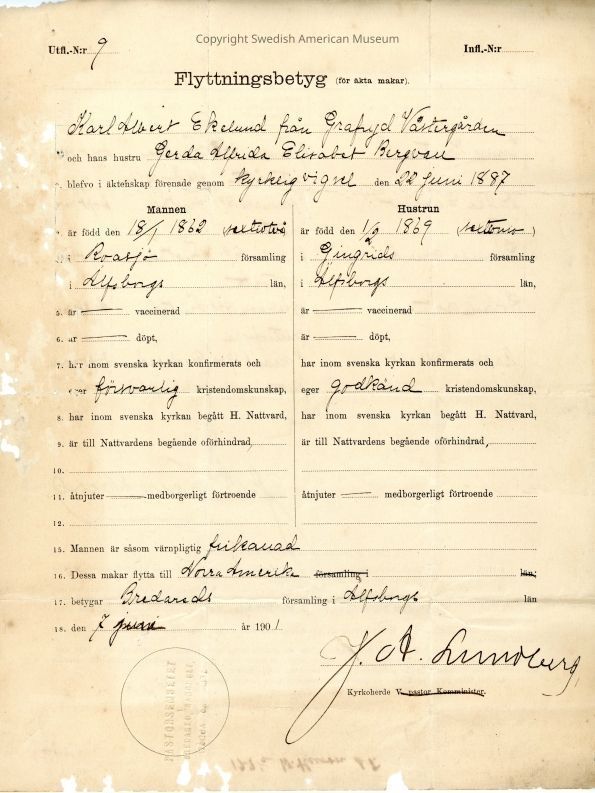 Copyright Swedish American Museum
Utfl.-N:r 9
Infl.-N:r
Flyttningsbetyg (för äkta makar).
Karl Albert Ekelund från Grafryd Västergården
och hans hustru Gerda Alfrida Elisabet Bergvall
blefvo i äktenskap förenade genom kyrklig vigsel den 22 Juni 1887
Mannen
Hustrun
är född den 18/1 1862 (sextiotvå
är född den 1/2 1869 ( )
i Roasjö församling
i Gingrids församling
i Älfsborgs län,
i Älfsborgs län,
5. är vaccinerad
är vaccinerad
6. är döpt,
är döpt,
7. har inom svenska kyrkan konfirmerats och
har inom svenska kyrkan konfirmerats och
eger försvarlig kristendomskunskap,
eger godkänd kristendomskunskap,
8. har inom svenska kyrkan begått H. Nattvard,
har inom svenska kyrkan begått H. Nattvard,
9. är till Nattvardens begående oförhindrad,
är till Nattvardens begående oförhindrad,
10.
11. åtnjuter medborgerligt förtroende
åtnjuter medborgerligt förtroende
12.
15. Mannen är såsom värnpligtig frikallad
16. Dessa makar flytta till Norra Amerika församling i län;
17. betygar Bredareds församling i Älfsborgs län
18. den 7 juni år 1901
J. A. Lundberg
Kyrkoherde V. pastor Komminister.
PASTORSEMBETET